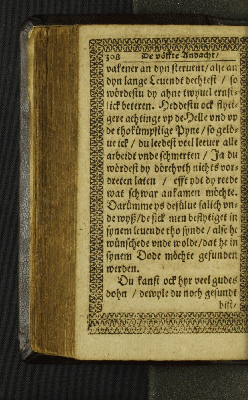 308 De vöffte Andacht/
vakener an dyn steruent/ alse an
dyn lange Leuendt dechtest / so
wördestu dy ahne twyuel ernst-
lick beteren. Heddestu ock flyti-
gere achtinge vp de Helle vnd vp
de thokümpstige Pyne/ so gelö-
ue ick / du leedest veel leeuer alle
arbeidt vnde schmerten / Ja du
wördest dy dörchvth nichts vor-
dreten laten / efft ydt dy rede
wat schwar ankamen möchte.
Darümme ys desülue salich vn-
de wyß/ de sick men beflytiget in
synem leuende tho synde / alse he
wünschede vnde wolde/ dat he in
synem Dode möchte gefunden
werden.
Du kanst ock hyr veel gudes
dohn / dewyle du noch gesundt
bist/